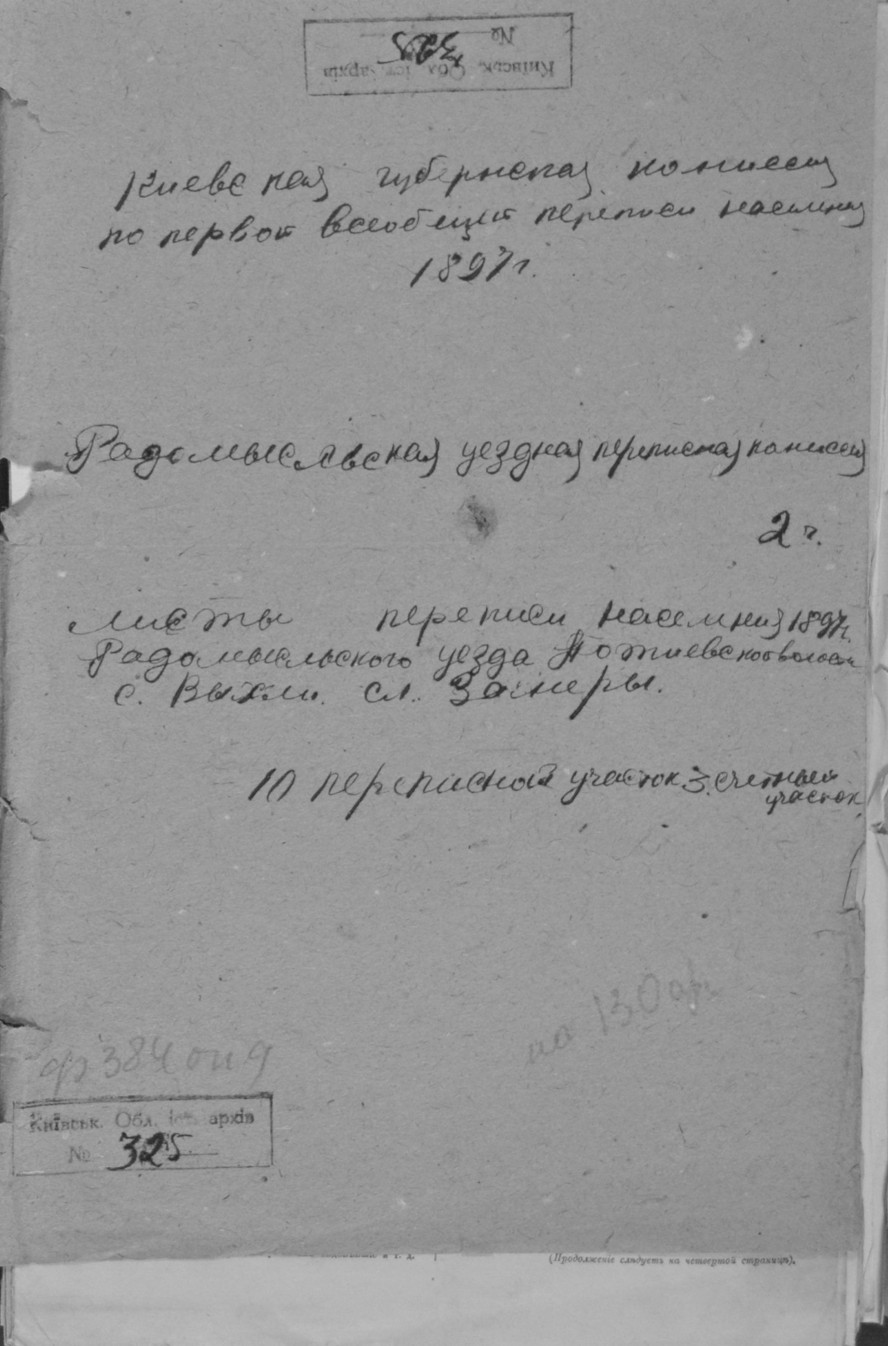 № 325
Київськ. Обл. іст. архів
Киевская губернская комиссия
по первой всеобщей переписи населения
1897 г.
Радомысльская уездная переписная комиссия
2 ч.
Листы переписи населения 1897 г.
Радомысльского уезда Потиевской волости
с. Выхли. сл. Замеры.
10 переписной участок 3. счетный
участок
на 130 ар.
ф 384 оп 9
Київськ. Обл. іст. архів
№ 325
(Продолженіе слѣдуетъ на четвертой страницѣ).